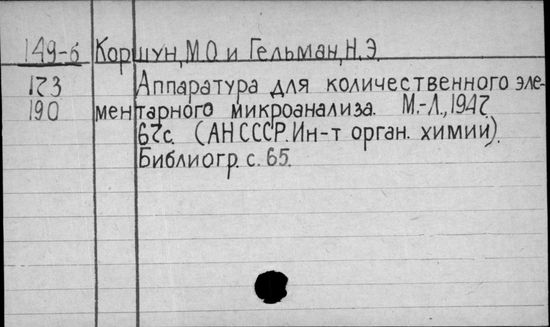 149-б Коршун, М.О и Гельман, Н.Э.
173 Аппаратура для количественного эле-
190 ментарного микроанализа. М.-Л., 1947.
67с. (АН СССР. Ин-т орган. химии).
Библиогр. с. 65.